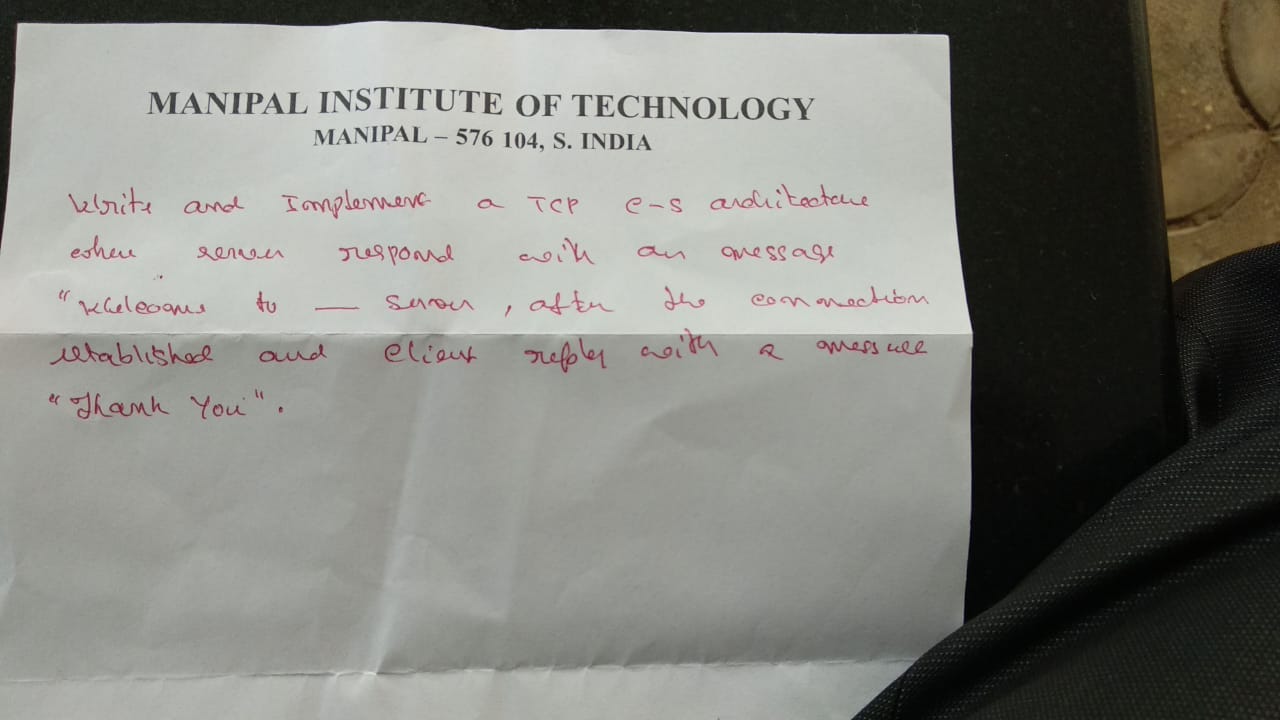 MANIPAL INSTITUTE OF TECHNOLOGY
MANIPAL – 576 104, S. INDIA
Write and Implement a TCP C-S architecture
when server respond with an message
"Welcome to — Server, after the connection
established and Client reply with a message
"Thank You".